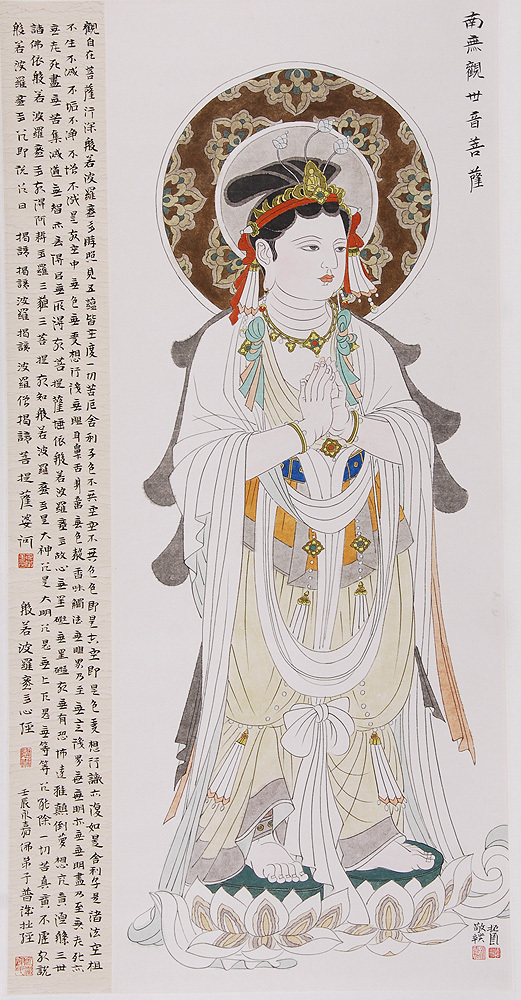 南無觀世音菩薩
觀自在菩薩行深般若波羅蜜多時照見五蘊皆空度一切苦厄舍利子色不異空空不異色色即是空空即是色受想行識亦復如是舍利子是諸法空相
不生不滅不垢不淨不增不減是故空中無色無受想行識無眼耳鼻舌身意無色聲香味觸法無眼界乃至無意識界無無明亦無無明盡乃至無老死亦
無老死盡無苦集滅道無智亦無得以無所得故菩提薩埵依般若波羅蜜多故心無罣礙無罣礙故無有恐怖遠離顛倒夢想究竟涅槃三世
諸佛依般若波羅蜜多故得阿耨多羅三藐三菩提故知般若波羅蜜多是大神咒是大明咒是無上咒是無等等咒能除一切苦真實不虛故說
般若波羅蜜多咒即說咒曰 揭諦揭諦波羅揭諦波羅僧揭諦菩提薩婆訶
般若波羅蜜多心經
壬辰永嘉佛弟子普